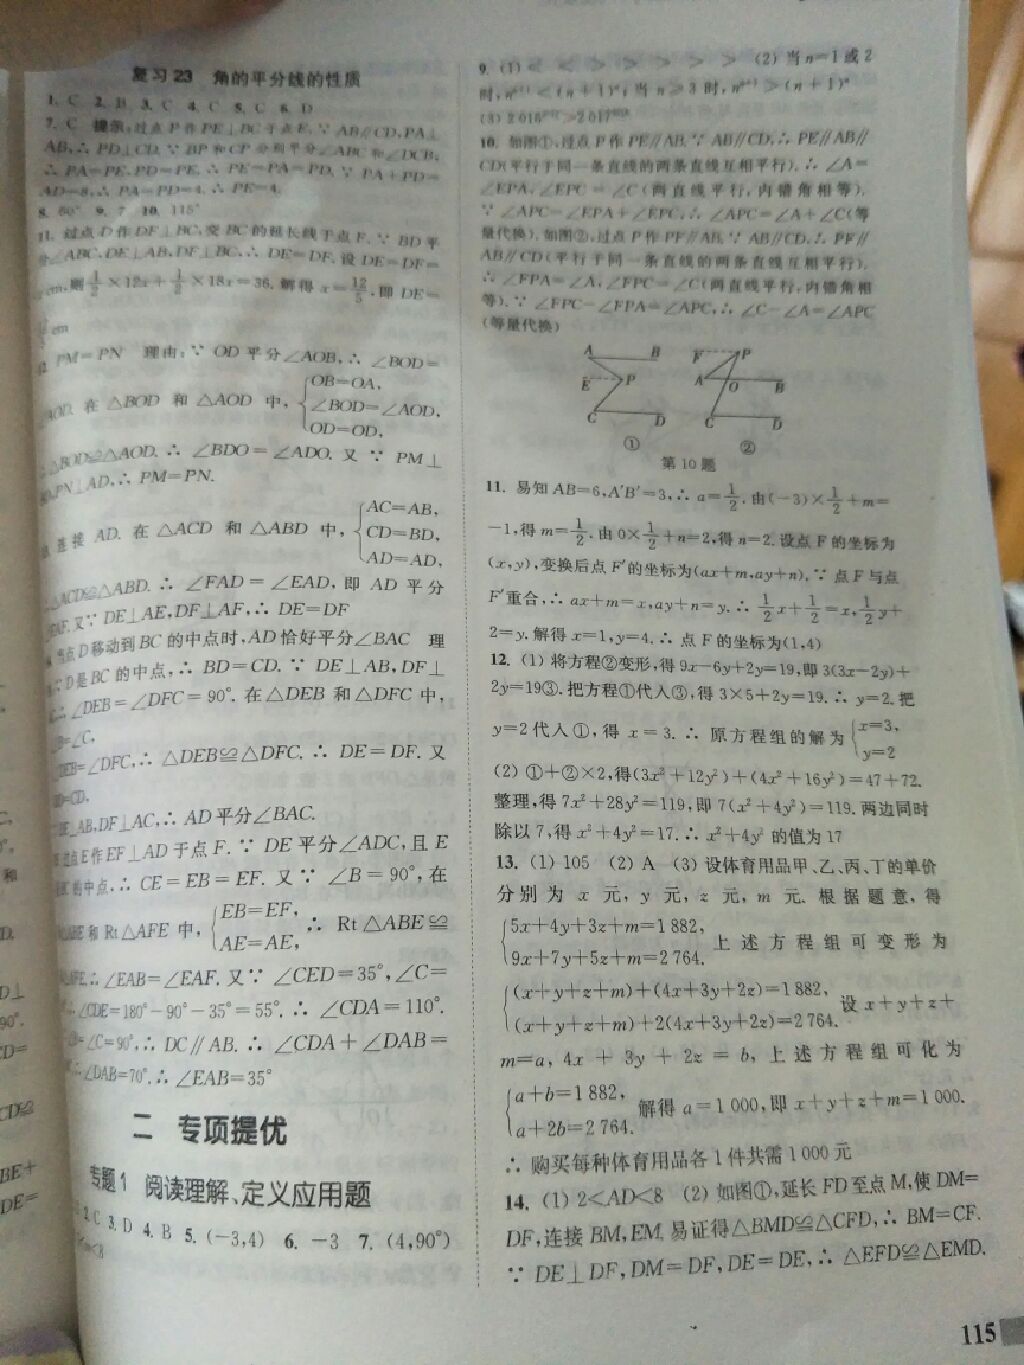 复习23 角的平分线的性质
1. C 2. B 3. C 4. C 5. C 6. D
7. C 提示:过点P作PE⊥BC于点E.∵AB∥CD,PA⊥
AB,∴PD⊥CD.∵BP和CP分别平分∠ABC和∠DCB,
∴PA=PE,PD=PE.∴PE=PA=PD.∵PA+PD=
AD=8,∴PA=PD=4.∴PE=4.
8. 60° 9. 7 10. 115°
11. 过点D作DF⊥BC,交BC的延长线于点F.∵BD平
∠ABC,DE⊥AB,DF⊥BC,∴DE=DF.设DE=DF=
则1/2×12x+1/2×18x=36.解得x=12/5,即DE=
cm
PM=PN 理由:∵OD平分∠AOB,∴∠BOD=
∠AOD.在△BOD和△AOD中,{OB=OA,
∠BOD=∠AOD,
OD=OD,
△BOD≌△AOD.∴∠BDO=∠ADO.又∵PM⊥
PN⊥AD,∴PM=PN.
连接AD.在△ACD和△ABD中,{AC=AB,
CD=BD,
AD=AD,
△ACD≌△ABD.∴∠FAD=∠EAD,即AD平分
又∵DE⊥AE,DF⊥AF,∴DE=DF
点D移动到BC的中点时,AD恰好平分∠BAC 理
D是BC的中点,∴BD=CD.∵DE⊥AB,DF⊥
∴∠DEB=∠DFC=90°.在△DEB和△DFC中,
∠B=∠C,
∠DEB=∠DFC,∴△DEB≌△DFC.∴DE=DF.又
BD=CD,
DE⊥AB,DF⊥AC,∴AD平分∠BAC.
过点E作EF⊥AD于点F.∵DE平分∠ADC,且E
的中点,∴CE=EB=EF.又∵∠B=90°,在
和Rt△AFE中,{EB=EF,
AE=AE, ∴Rt△ABE≌
∴∠EAB=∠EAF.又∵∠CED=35°,∠C=
∴∠CDE=180°-90°-35°=55°.∴∠CDA=110°.
∠C=90°,∴DC∥AB.∴∠CDA+∠DAB=
∠DAB=70°.∴∠EAB=35°
二 专项提优
专题1 阅读理解、定义应用题
2. C 3. D 4. B 5. (-3,4) 6. -3 7. (4,90°)
9. (1) < < > > > > > (2) 当n=1或2
时,nⁿ⁺¹<(n+1)ⁿ;当n≥3时,nⁿ⁺¹>(n+1)ⁿ
10. 如图①,过点P作PE∥AB.∵AB∥CD,∴PE∥AB∥
CD(平行于同一条直线的两条直线互相平行).∴∠A=
∠EPA,∠EPC=∠C(两直线平行,内错角相等).
∵∠APC=∠EPA+∠EPC,∴∠APC=∠A+∠C(等
量代换).如图②,过点P作PF∥AB.∵AB∥CD,∴PF∥
AB∥CD(平行于同一条直线的两条直线互相平行).
∴∠FPA=∠A,∠FPC=∠C(两直线平行,内错角相
等).∵∠FPC-∠FPA=∠APC,∴∠C-∠A=∠APC
(等量代换)
A B F P
E P A O B
C D C D
① ②
第10题
11. 易知AB=6,A′B′=3,∴a=1/2.由(-3)×1/2+m=
-1,得m=1/2.由0×1/2+n=2,得n=2.设点F的坐标为
(x,y),变换后点F′的坐标为(ax+m,ay+n),∵点F与点
F′重合,∴ax+m=x,ay+n=y.∴1/2x+1/2=x,1/2y+
2=y.解得x=1,y=4.∴点F的坐标为(1,4)
12. (1) 将方程②变形,得9x-6y+2y=19,即3(3x-2y)+
2y=19③.把方程①代入③,得3×5+2y=19.∴y=2.把
y=2代入①,得x=3.∴原方程组的解为{x=3,
y=2
(2) ①+②×2,得(3x²+12y²)+(4x²+16y²)=47+72.
整理,得7x²+28y²=119,即7(x²+4y²)=119.两边同时
除以7,得x²+4y²=17.∴x²+4y²的值为17
13. (1) 105 (2) A (3) 设体育用品甲、乙、丙、丁的单价
分别为x元,y元,z元,m元.根据题意,得
{5x+4y+3z+m=1882,
9x+7y+5z+m=2764. 上述方程组可变形为
{(x+y+z+m)+(4x+3y+2z)=1882,
(x+y+z+m)+2(4x+3y+2z)=2764. 设x+y+z+
m=a,4x+3y+2z=b,上述方程组可化为
{a+b=1882,
a+2b=2764. 解得a=1000,即x+y+z+m=1000.
∴购买每种体育用品各1件共需1000元
14. (1) 2<AD<8 (2) 如图①,延长FD至点M,使DM=
DF,连接BM,EM.易证得△BMD≌△CFD,∴BM=CF.
∵DE⊥DF,DM=DF,DE=DE,∴△EFD≌△EMD.
115